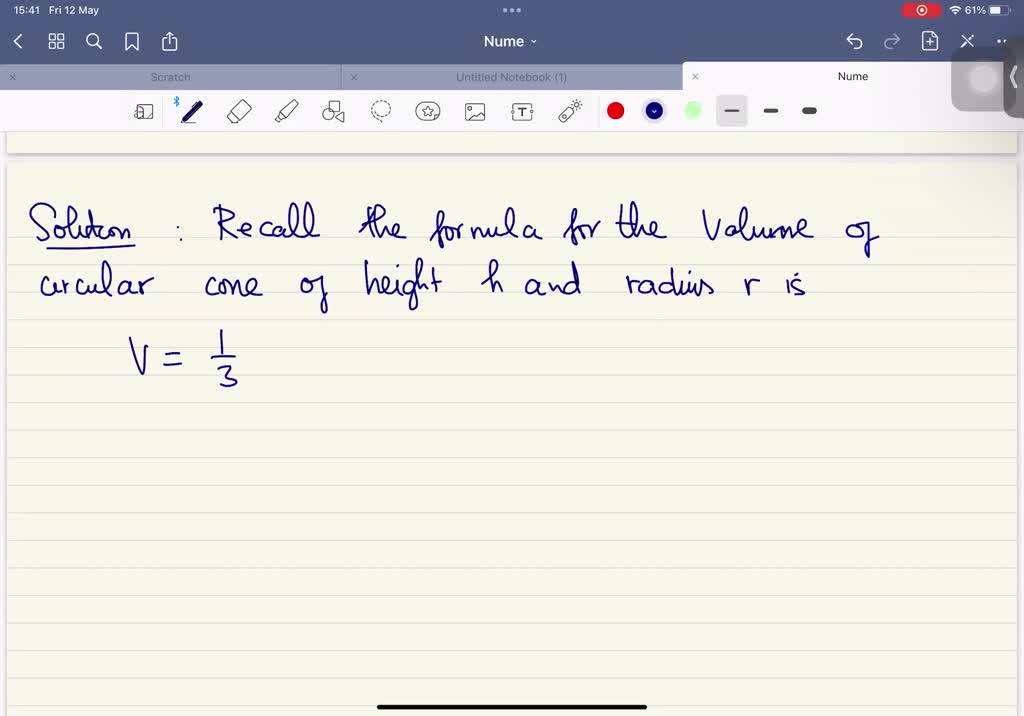 15:41 Fri 12 May
61%
Nume
Scratch
Untitled Notebook (1)
Nume
Solution : Recall the formula for the Volume of
circular cone of height h and radius r is
V = 1/3